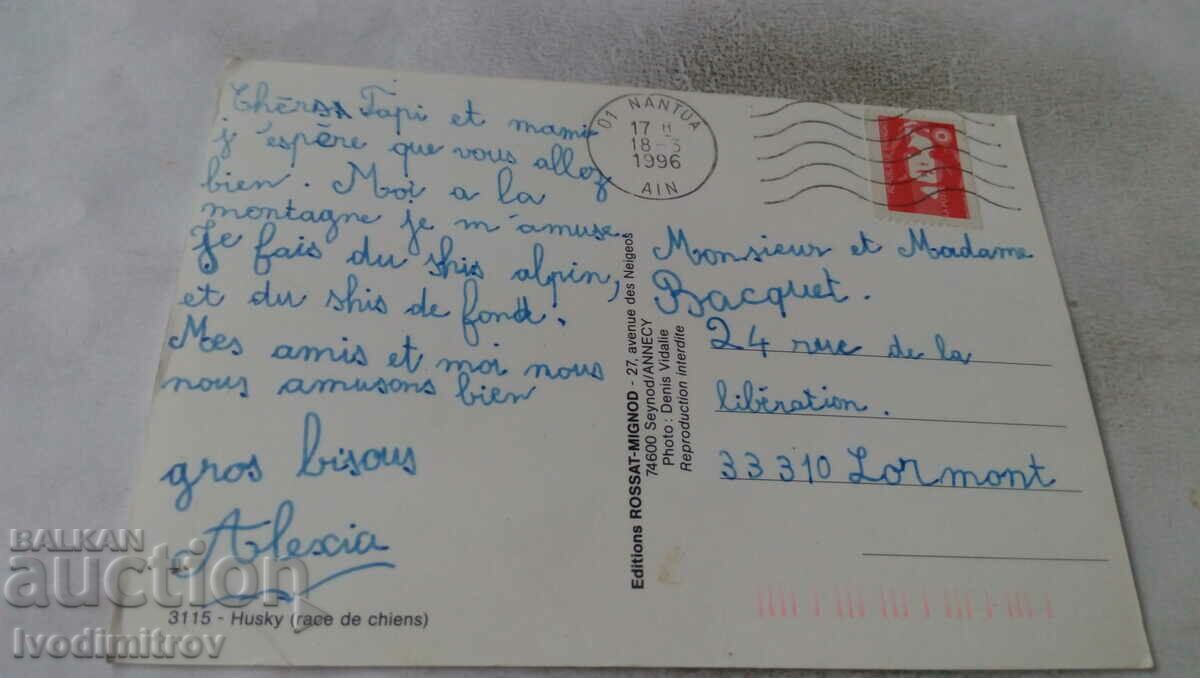 Chers Papi et mami
j'espère que vous allez
bien. Moi a la
montagne je m'amuse.
Je fais du skis alpin,
et du skis de fond.
Mes amis et moi nous
nous amusons bien
gros bisous
Alexia
3115 - Husky (race de chiens)
Editions ROSSAT-MIGNOD - 27, avenue des Neigeos
74600 Seynod/ANNECY
Photo : Denis Vidalie
Reproduction interdite
01 NANTUA
17 H
18-3
1996
AIN
Monsieur et Madame
Bacquet.
24 rue de la
libération.
33310 Lormont
BALKAN
auction
Ivodimitrov